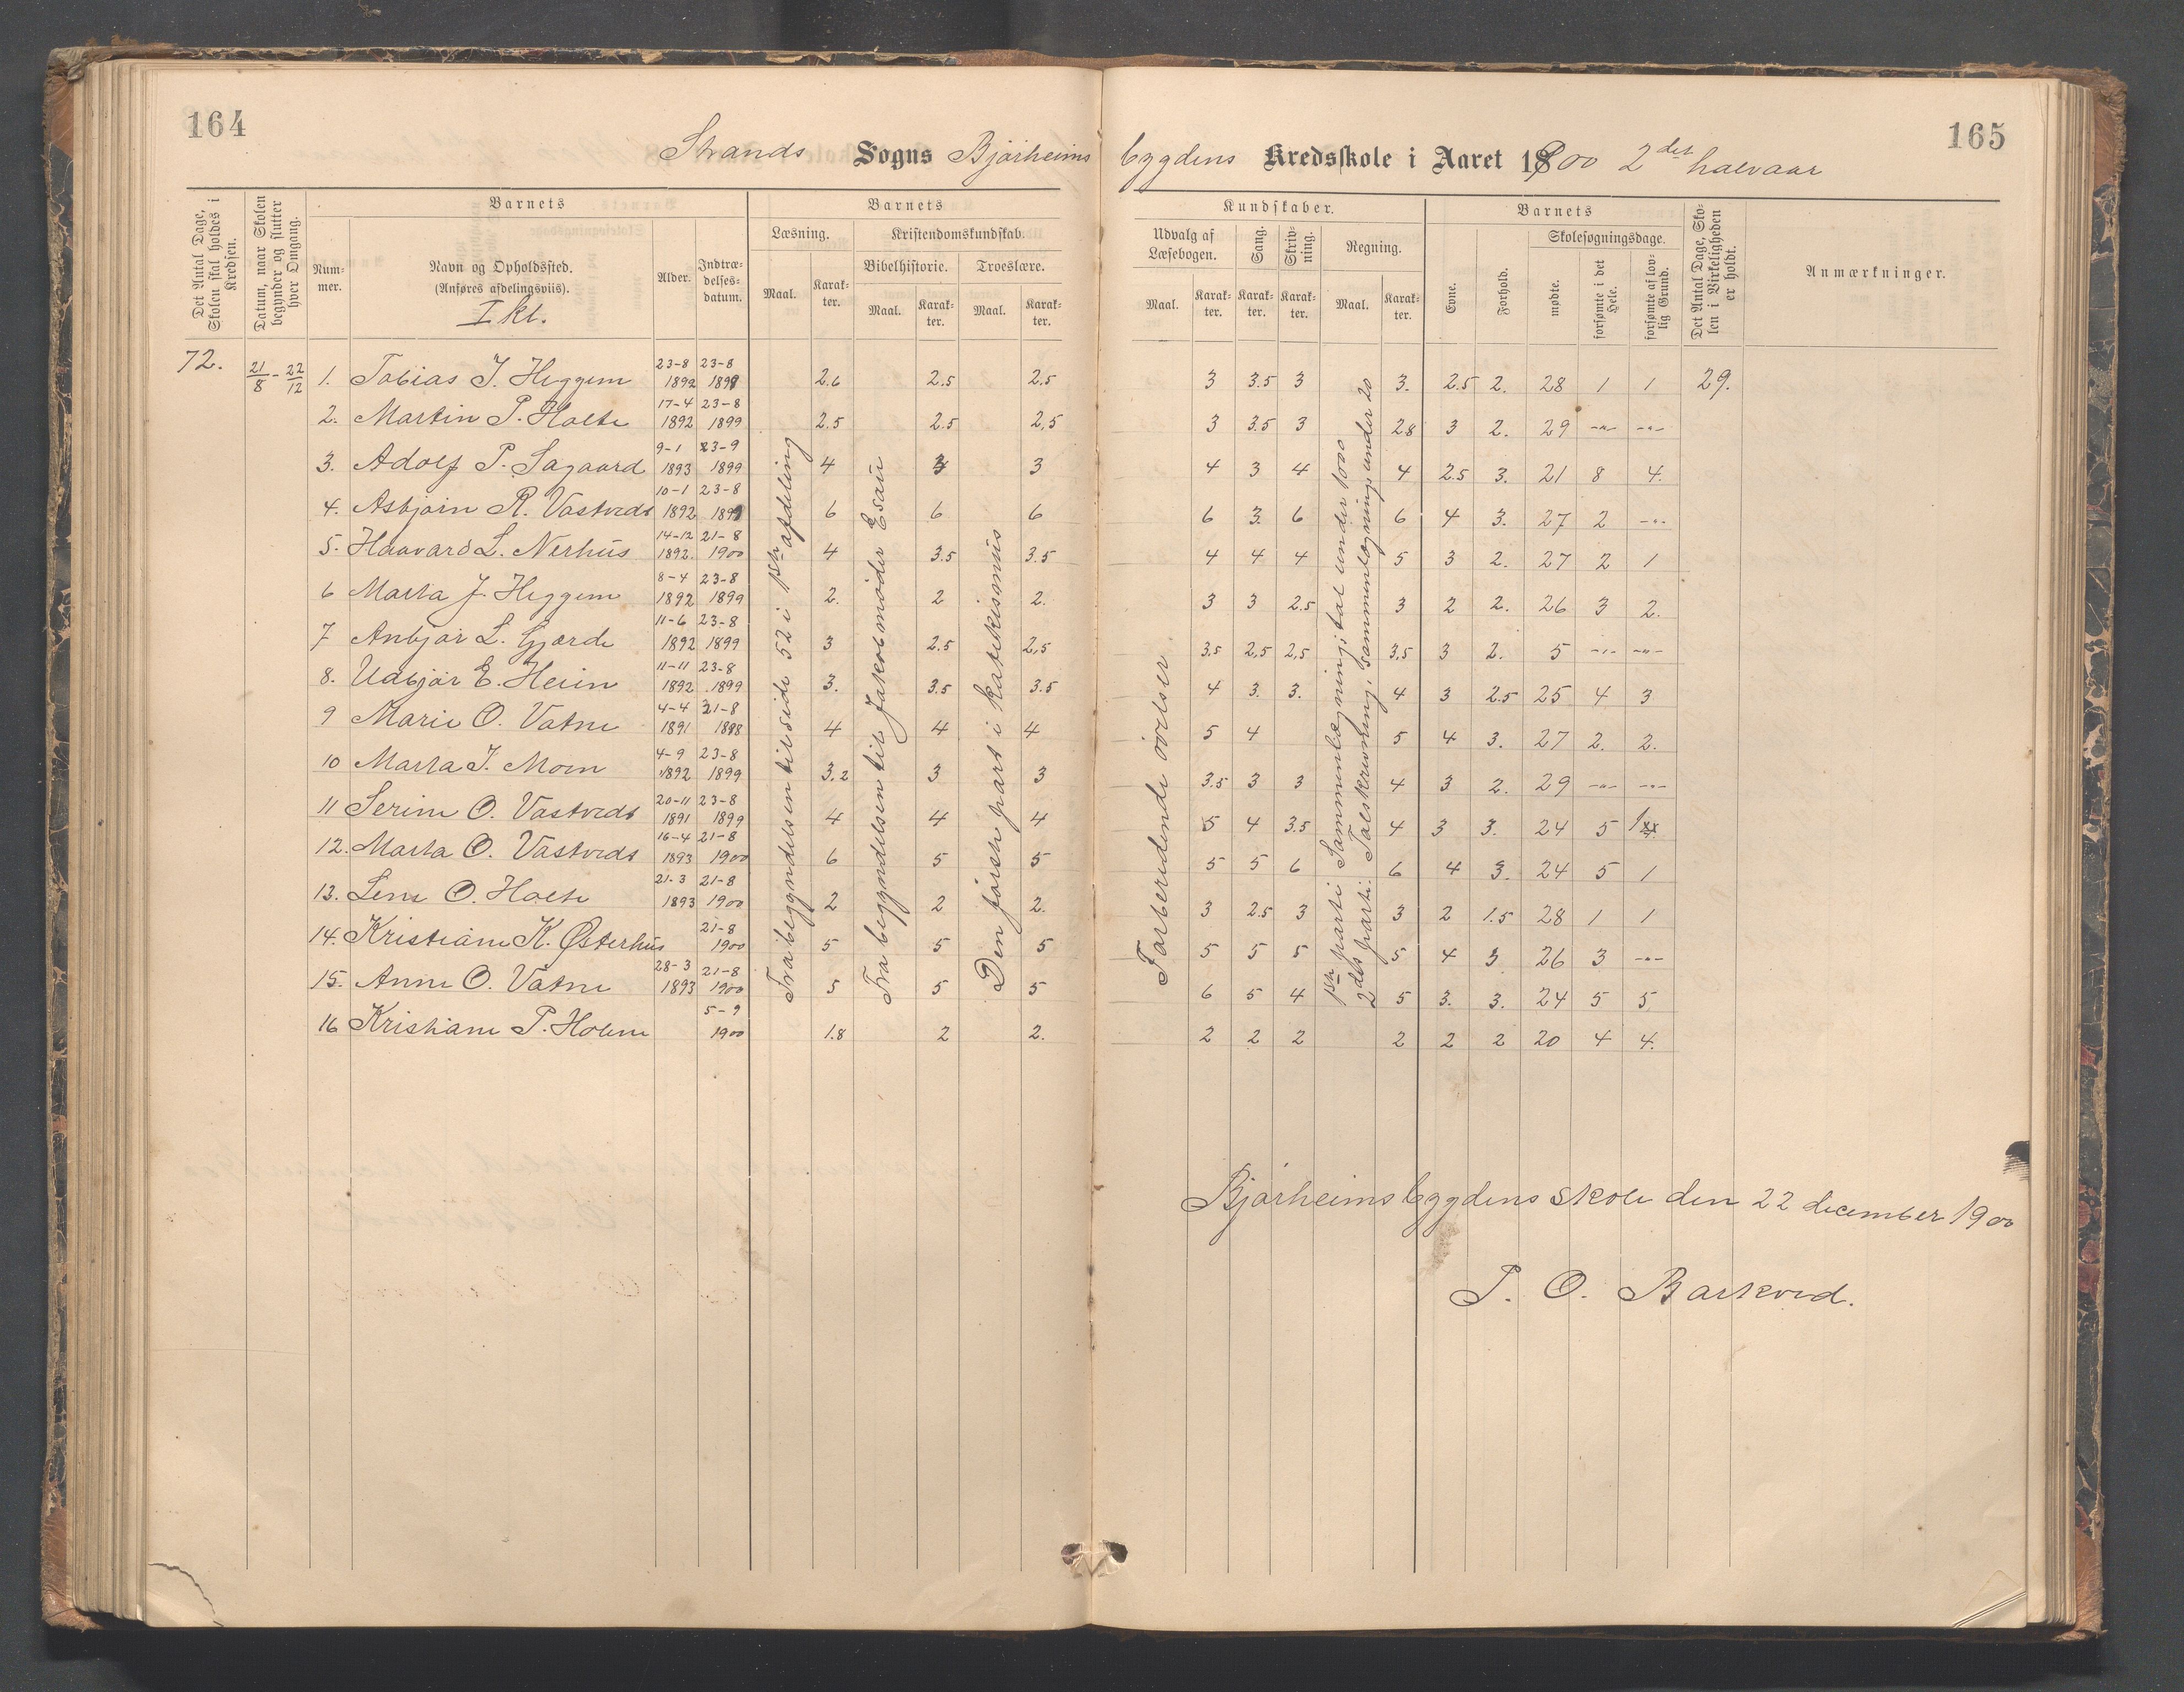 164
165
Strands Sogns Bjørheims bygdens Kredsskole i Aaret 1900 2det halvaar
Det Antal Dage, Skolen skal holdes i Kredsen.
Datum, naar Skolen begynder og slutter hver Omgang.
Barnets
Nummer.
Navn og Opholdssted.
(Anføres afdelingsviis).
I kl.
Alder.
Indtrædelsesdatum.
Barnets
Læsning.
Maal.
Karakter.
Kristendomskundskab.
Bibelhistorie.
Maal.
Karakter.
Troeslære.
Maal.
Karakter.
Kundskaber.
Udvalg af Læsebogen.
Maal.
Karakter.
Sang.
Karakter.
Skrivning.
Karakter.
Regning.
Maal.
Karakter.
Barnets
Evne.
Forhold.
Skolesøgningsdage.
mødte.
forsømte i det Hele.
forsømte af lovlig Grund.
Det Antal Dage, Skolen i Virkeligheden er holdt.
Anmærkninger.
72. 21/8 - 22/12
1. Tobias J. Heggem 23-8 1892 23-8 1899 2.6 2.5 2.5 3 3.5 3 3. 2.5 2. 28 1 1 29.
2. Martin P. Holte 17-4 1892 23-8 1899 2.5 2.5 2,5 3 3.5 3 2.8 3 2. 29 -"- -"-
3. Adolf P. Sagaard 9-1 1893 23-9 1899 4 3 3 4 3 4 4 2.5 3. 21 8 4.
4. Asbjørn R. Vastveds 10-1 1892 23-8 1899 6 6 6 6 3. 6 6 4 3. 27 2 -"-
5. Haavard L. Nerhus 14-12 1892. 21-8 1900 4 3.5 3.5 4 4 4 5 3 2. 27 2 1
6 Marta J. Heggem 8-4 1892 23-8 1899 2. 2 2. 3 3 2.5 3 2 2. 26 3 2.
7 Anbjør L. Gjærde 11-6 1892 23-8 1899 3 2.5 2,5 3,5 2,5 2,5 3,5 3 2. 5 -"- -"-
8. Udbjør E. Heim 11-11 1892 23-8 1899 3. 3.5 3.5 4 3. 3. 4 3 2.5 25 4 3
9 Marie O. Vatne 4-4 1891 21-8 1898 4 4 4 5 4 5 4 3. 27 2. 2.
10 Marta J. Moen 4-9 1892 23-8 1899 3.2 3 3 3.5 3 3 4 3 2. 29 -"- -"-
11 Serine O. Vastveds 20-11 1891 23-8 1899 4 4 4 5 4 3.5 4 3 3. 24 5 1
12. Marta O. Vastveds 16-4 1893 21-8 1900 6 5 5 5 5 6 6 4 3. 24 5 1
13. Lene O. Holte 21-3 1893 21-8 1900 2 2 2. 3 2.5 3 3 2 1.5 28 1 1
14. Kristiane K. Østerhus 21-8 1900 5 5 5 5 5 5 5 4 3 26 3 -"-
15. Anne O. Vatne 28-3 1893 21-8 1900 5 5 5 6 5 4 5 3. 3. 24 5 5
16 Kristiane P. Holme 5-9 1900 1.8 2 2. 2 2 2 2 2 2 20 4 4.
Fra begyndelsen til side 52 i 1ste afdeling
Fra begyndelsen til Jakob møder Esau
Den første part i Katekismus
Forberedende øvelser
1ste parti Sammenlægning; tal under 1000
2det parti: Talskrivning, sammenlægning under 20
Bjørheimsbygdens skole den 22 december 1900
P. O. Barkved.